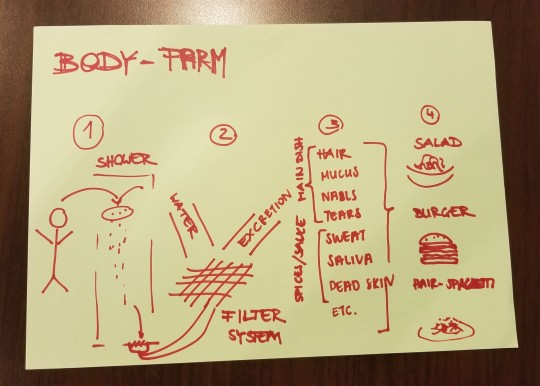 BODY-FARM
1
SHOWER
2
WATER
EXCRETION
FILTER
SYSTEM
3
MAIN DISH
HAIR
MUCUS
NAILS
TEARS
SPICES/SAUCE
SWEAT
SALIVA
DEAD SKIN
ETC.
4
SALAD
BURGER
HAIR-SPAGHETTI